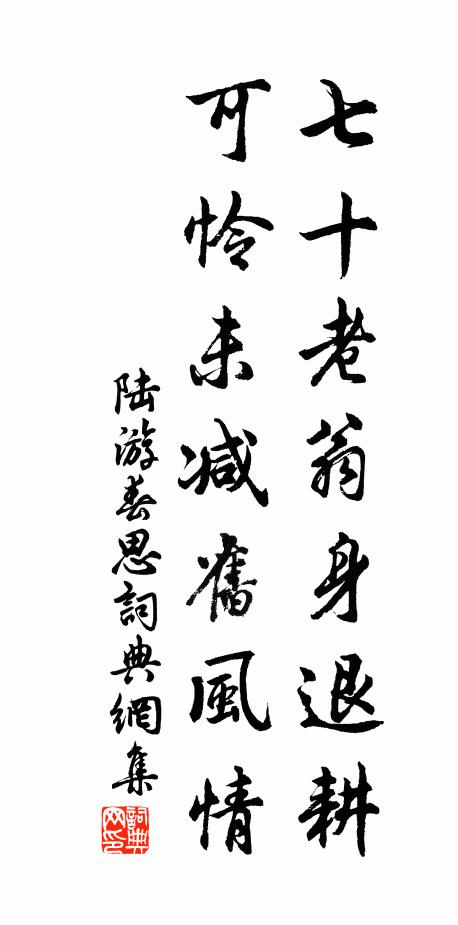 七十老翁身退耕
可怜未减舊風情
陆游春思詞典網集
詞典网印